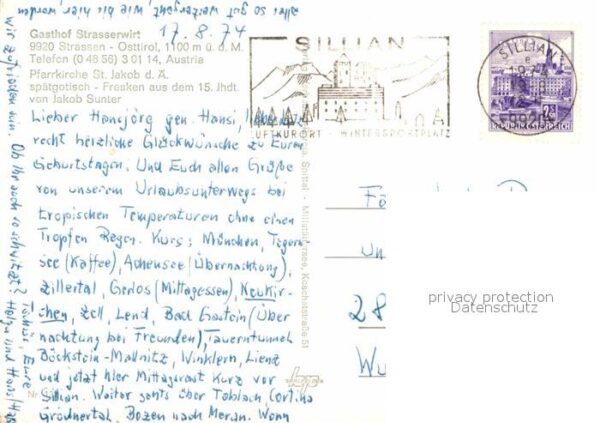 Gasthof Strasserwirt
9920 Strassen - Osttirol, 1100 m ü. d. M.
Telefon (0 48 56) 3 01 14, Austria
Pfarrkirche St. Jakob d. Ä.
spätgotisch - Freaken aus dem 15. Jhdt.
von Jakob Sunter
17.8.74
Lieber Hansjörg gen. Hansi
recht herzliche Glückwünsche zu Euren
Geburtstagen. Und Euch allen Grüße
von unserem Urlaubsunterwegs bei
tropischen Temperaturen ohne einen
Tropfen Regen. Kurs: München, Tegern-
see (Kaffee), Achensee (Übernachtung),
Zillertal, Gerlos (Mittagessen), Neukir-
chen, Zell, Lend, Bad Gastein (Über
nachtung bei Freunden), Tauerntunnel
Böckstein-Mallnitz, Winklern, Lienz
und jetzt hier Mittagsrast kurz vor
Sillian. Weiter gehts über Toblach, Cortina
Grödnertal, Bozen nach Meran. Wenn
alles so gut weitergeht, wie bis hier, werden
wir zufrieden sein. Ob Ihr auch so schwitzt?
Tschüs, Eure
Helga und Hans
SILLIAN
LUFTKURORT - WINTERSPORTPLATZ
SILLIAN
9920
REPUBLIK ÖSTERREICH
Fa
un
28
Wu
privacy protection
Datenschutz